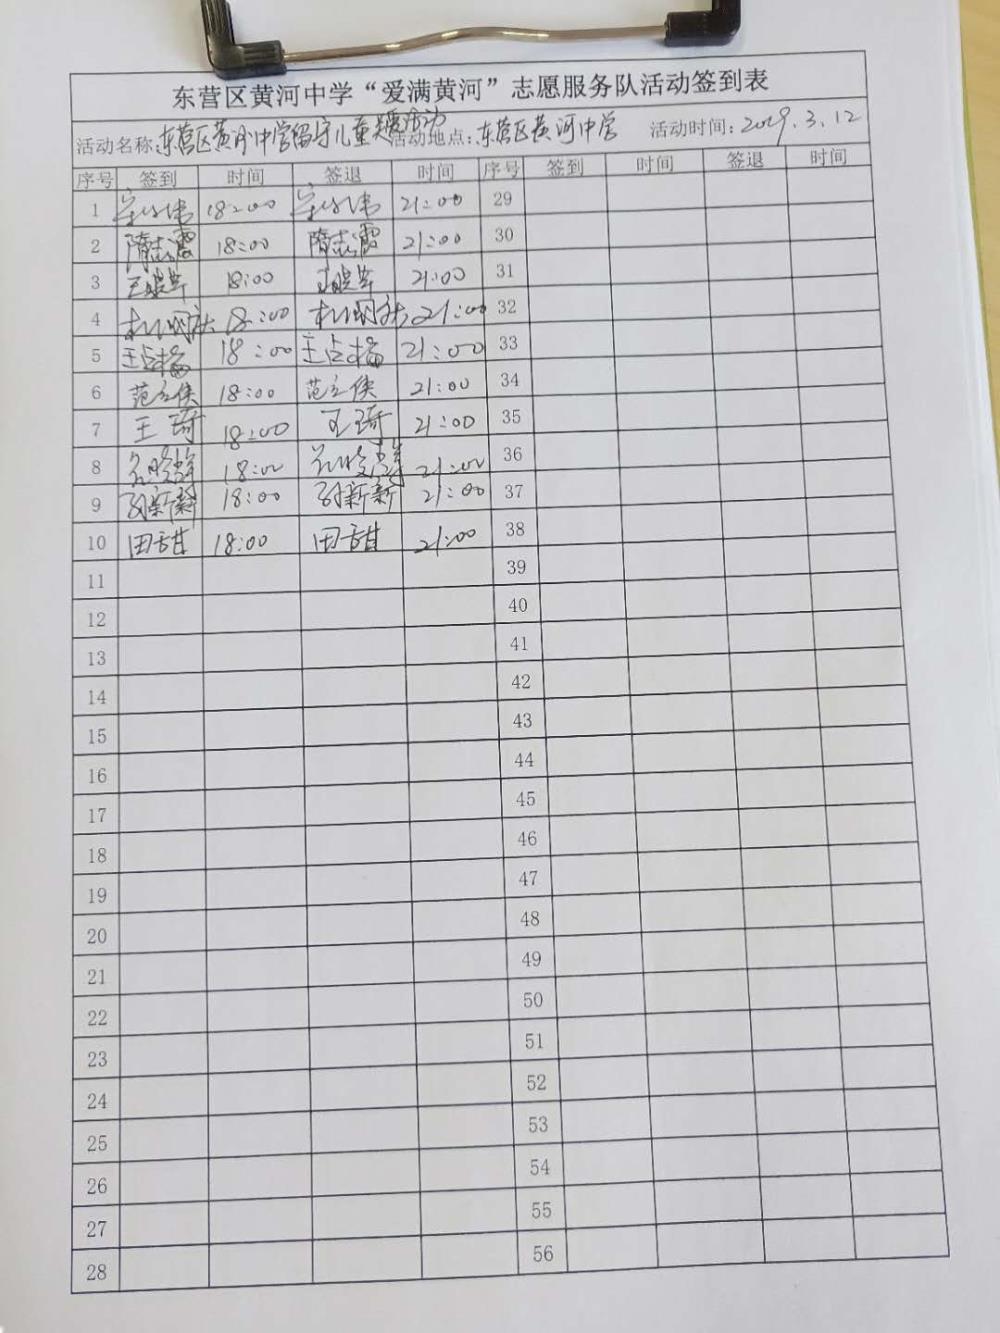 东营区黄河中学“爱满黄河”志愿服务队活动签到表
活动名称:东营区黄河中学留守儿童关爱活动 活动地点:东营区黄河中学 活动时间:2019.3.12
序号 签到 时间 签退 时间 序号 签到 时间 签退 时间
1 18:00 21:00 29
2 隋志霞 18:00 隋志霞 21:00 30
3 18:00 21:00 31
4 18:00 21:00 32
5 王占梅 18:00 王占梅 21:00 33
6 范立侠 18:00 范立侠 21:00 34
7 王琦 18:00 王琦 21:00 35
8 18:00 21:00 36
9 孙新新 18:00 孙新新 21:00 37
10 田甜 18:00 田甜 21:00 38
11 39
12 40
13 41
14 42
15 43
16 44
17 45
18 46
19 47
20 48
21 49
22 50
23 51
24 52
25 53
26 54
27 55
28 56